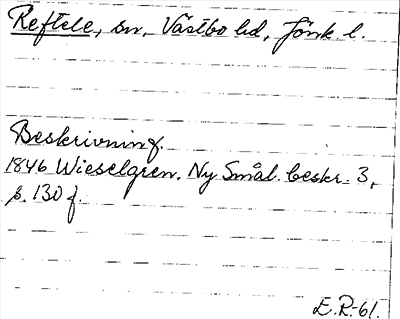 Reftele, sn, Västbo hd, Jönk l.
Beskrivning.
1846 Wieselgren. Ny Smål. beskr. 3,
s. 130 f.
E.R.-61.